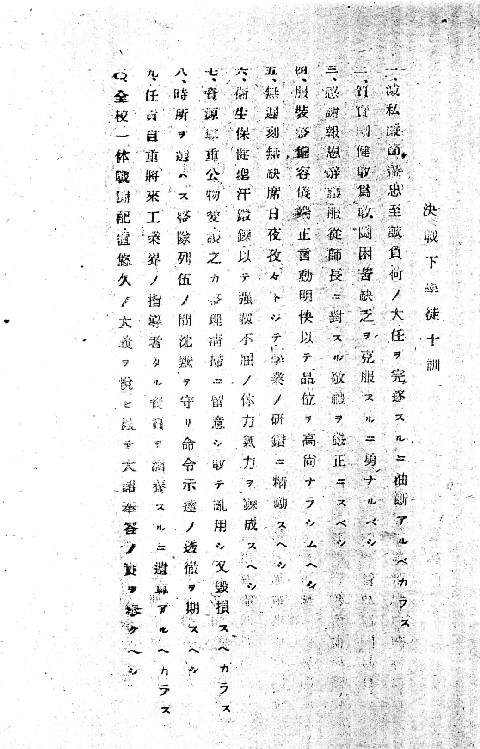 決戦下学徒十訓
一、滅私厳節尽忠至誠負荷ノ大任ヲ完遂スルニ油断アルベカラズ
二、質実剛健敢為敢闘困苦缺乏ヲ克服スルニ勇ナルベシ
三、感謝報恩 服従師長ニ対スル敬礼ヲ厳正ニスベシ
四、服装 容儀端正言動明快以テ品位ヲ高尚ナラシムヘシ
五、無遅刻無缺席日夜孜々トシテ学業ノ研鑽ニ精励スヘシ
六、衛生保健 汗鍛錬以テ強靱不屈ノ体力気力ヲ錬成スヘシ
七、資源尊重公物愛護之カ 理清掃ニ留意シ敢テ乱用シ又毀損スヘカラス
八、時所ヲ選ハス 隊列伍ノ間沈黙ヲ守リ命令示達ノ透徹ヲ期スヘシ
九、任責自重将来工業界ノ指導者タル資質ヲ涵養スルニ遺算アルヘカラス
〇、全校一体戦闘配置悠久ノ大義ヲ 大詔奉答ノ ヲ ヘシ